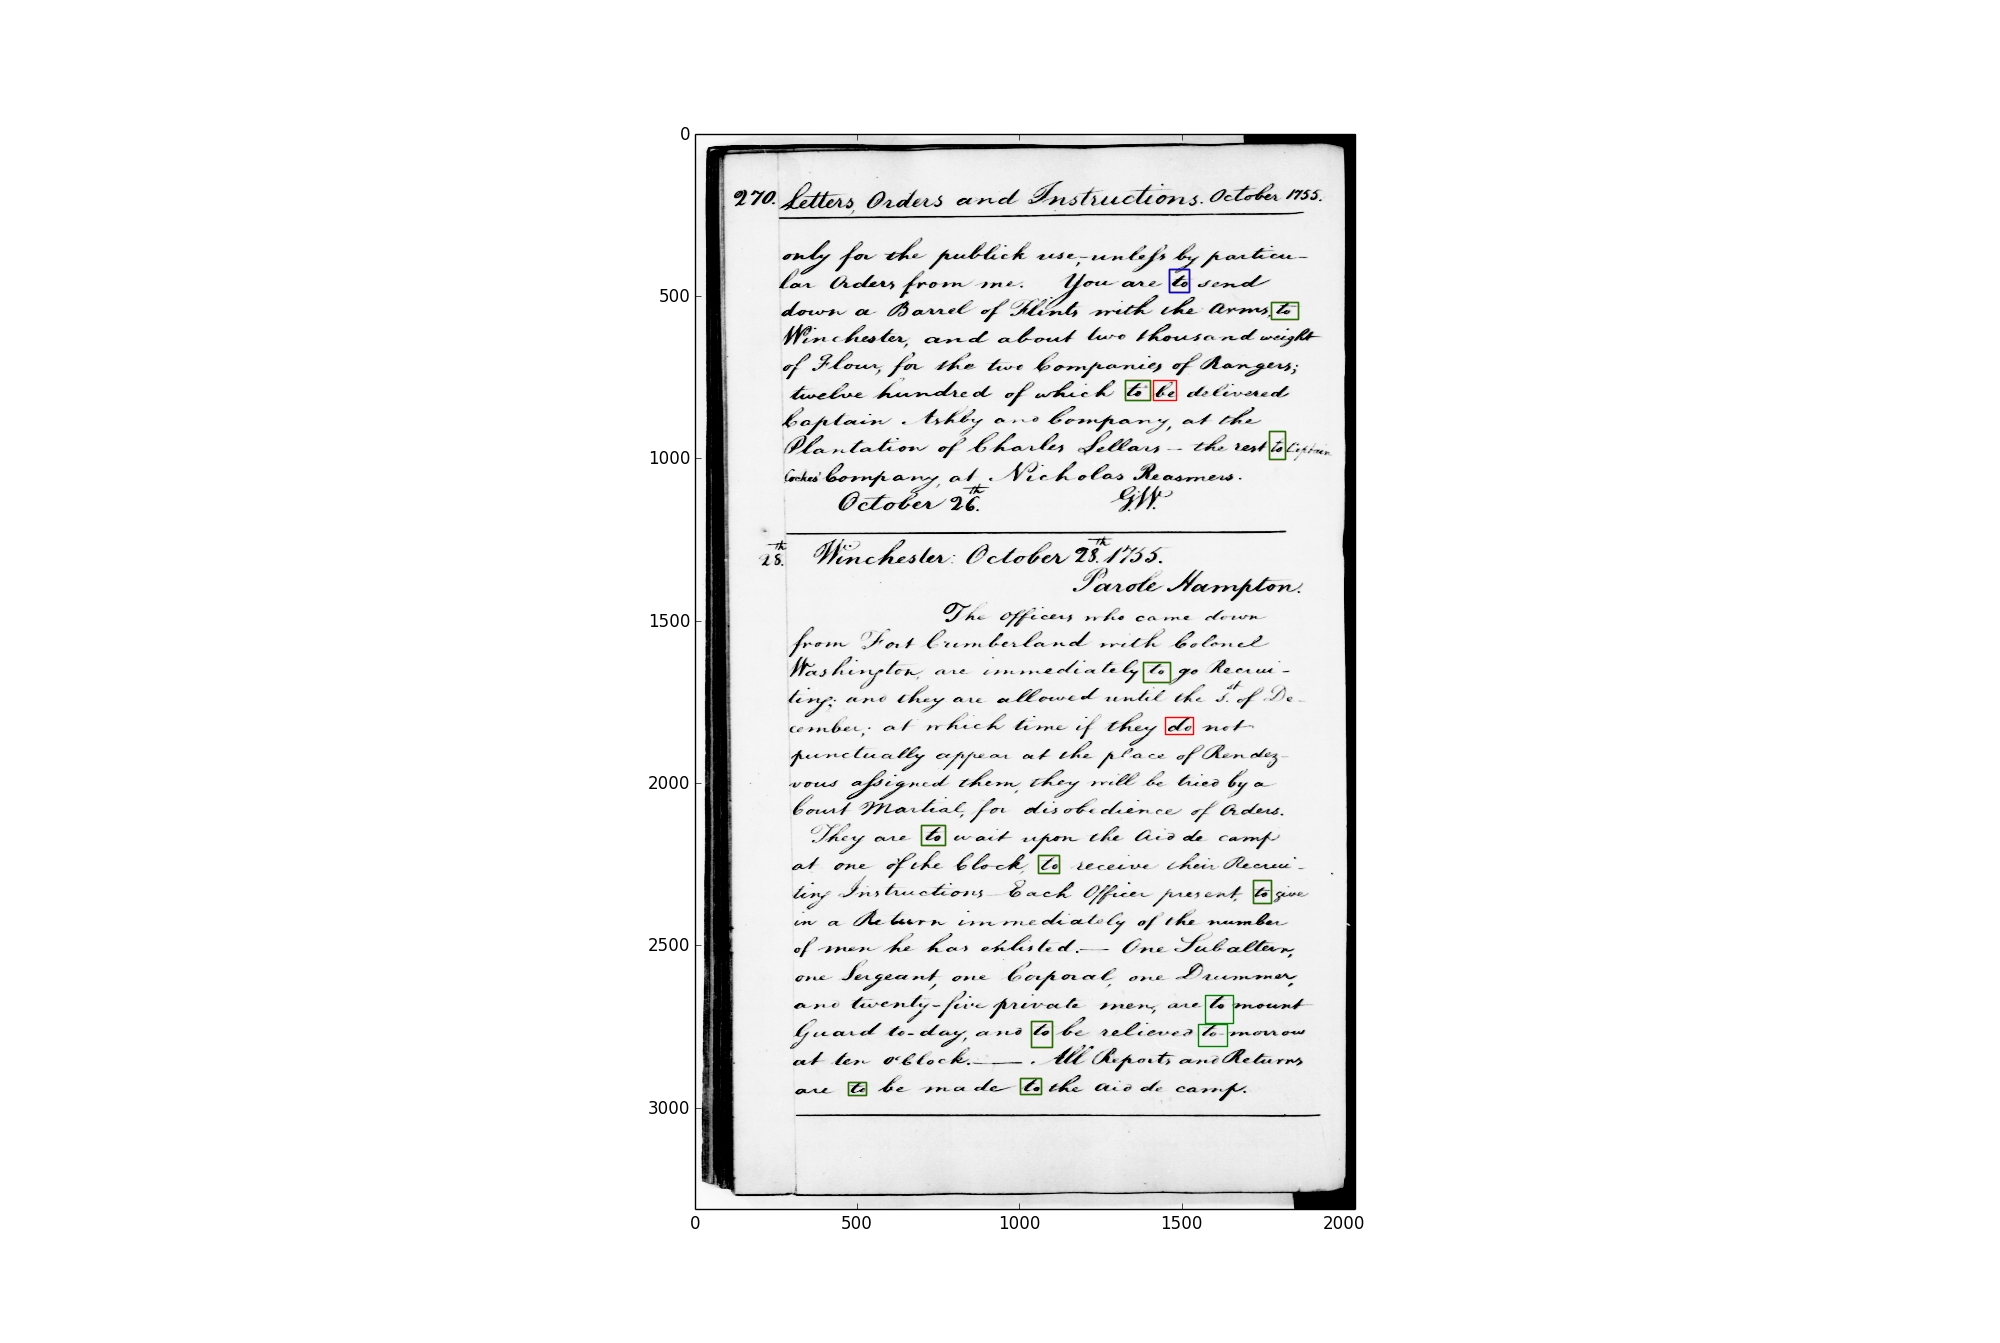 270. Letters, Orders and Instructions. October 1755.
only for the publick use,-unless by particu-
lar Orders from me. You are to send
down a Barrel of Flints with the Arms, to
Winchester, and about two thousand weight
of Flour, for the two Companies of Rangers;
twelve hundred of which to be delivered
Captain Ashby and Company, at the
Plantation of Charles Sellars - the rest to Captain
Cockes' Company, at Nicholas Reasmers.
October 26th. G.W.
28th. Winchester: October 28th. 1755.
Parole Hampton.
The Officers who came down
from Fort Cumberland with Colonel
Washington, are immediately to go Recrui-
ting; and they are allowed until the 1st. of De-
cember; at which time if they do not
punctually appear at the place of Rendez-
vous assigned them, they will be tried by a
Court Martial, for disobedience of Orders.
They are to wait upon the Aid de camp
at one of the Clock, to receive their Recrui-
ting Instructions Each Officer present, to give
in a Return immediately of the number
of men he has enlisted.- One Subaltern,
one Sergeant, one Corporal, one Drummer,
and twenty-five private men, are to mount
Guard to-day, and to be relieved to-morrow
at ten o'Clock.-. All Reports and Returns
are to be made to the Aid de camp.
0
500
1000
1500
2000
2500
3000
0 500 1000 1500 2000